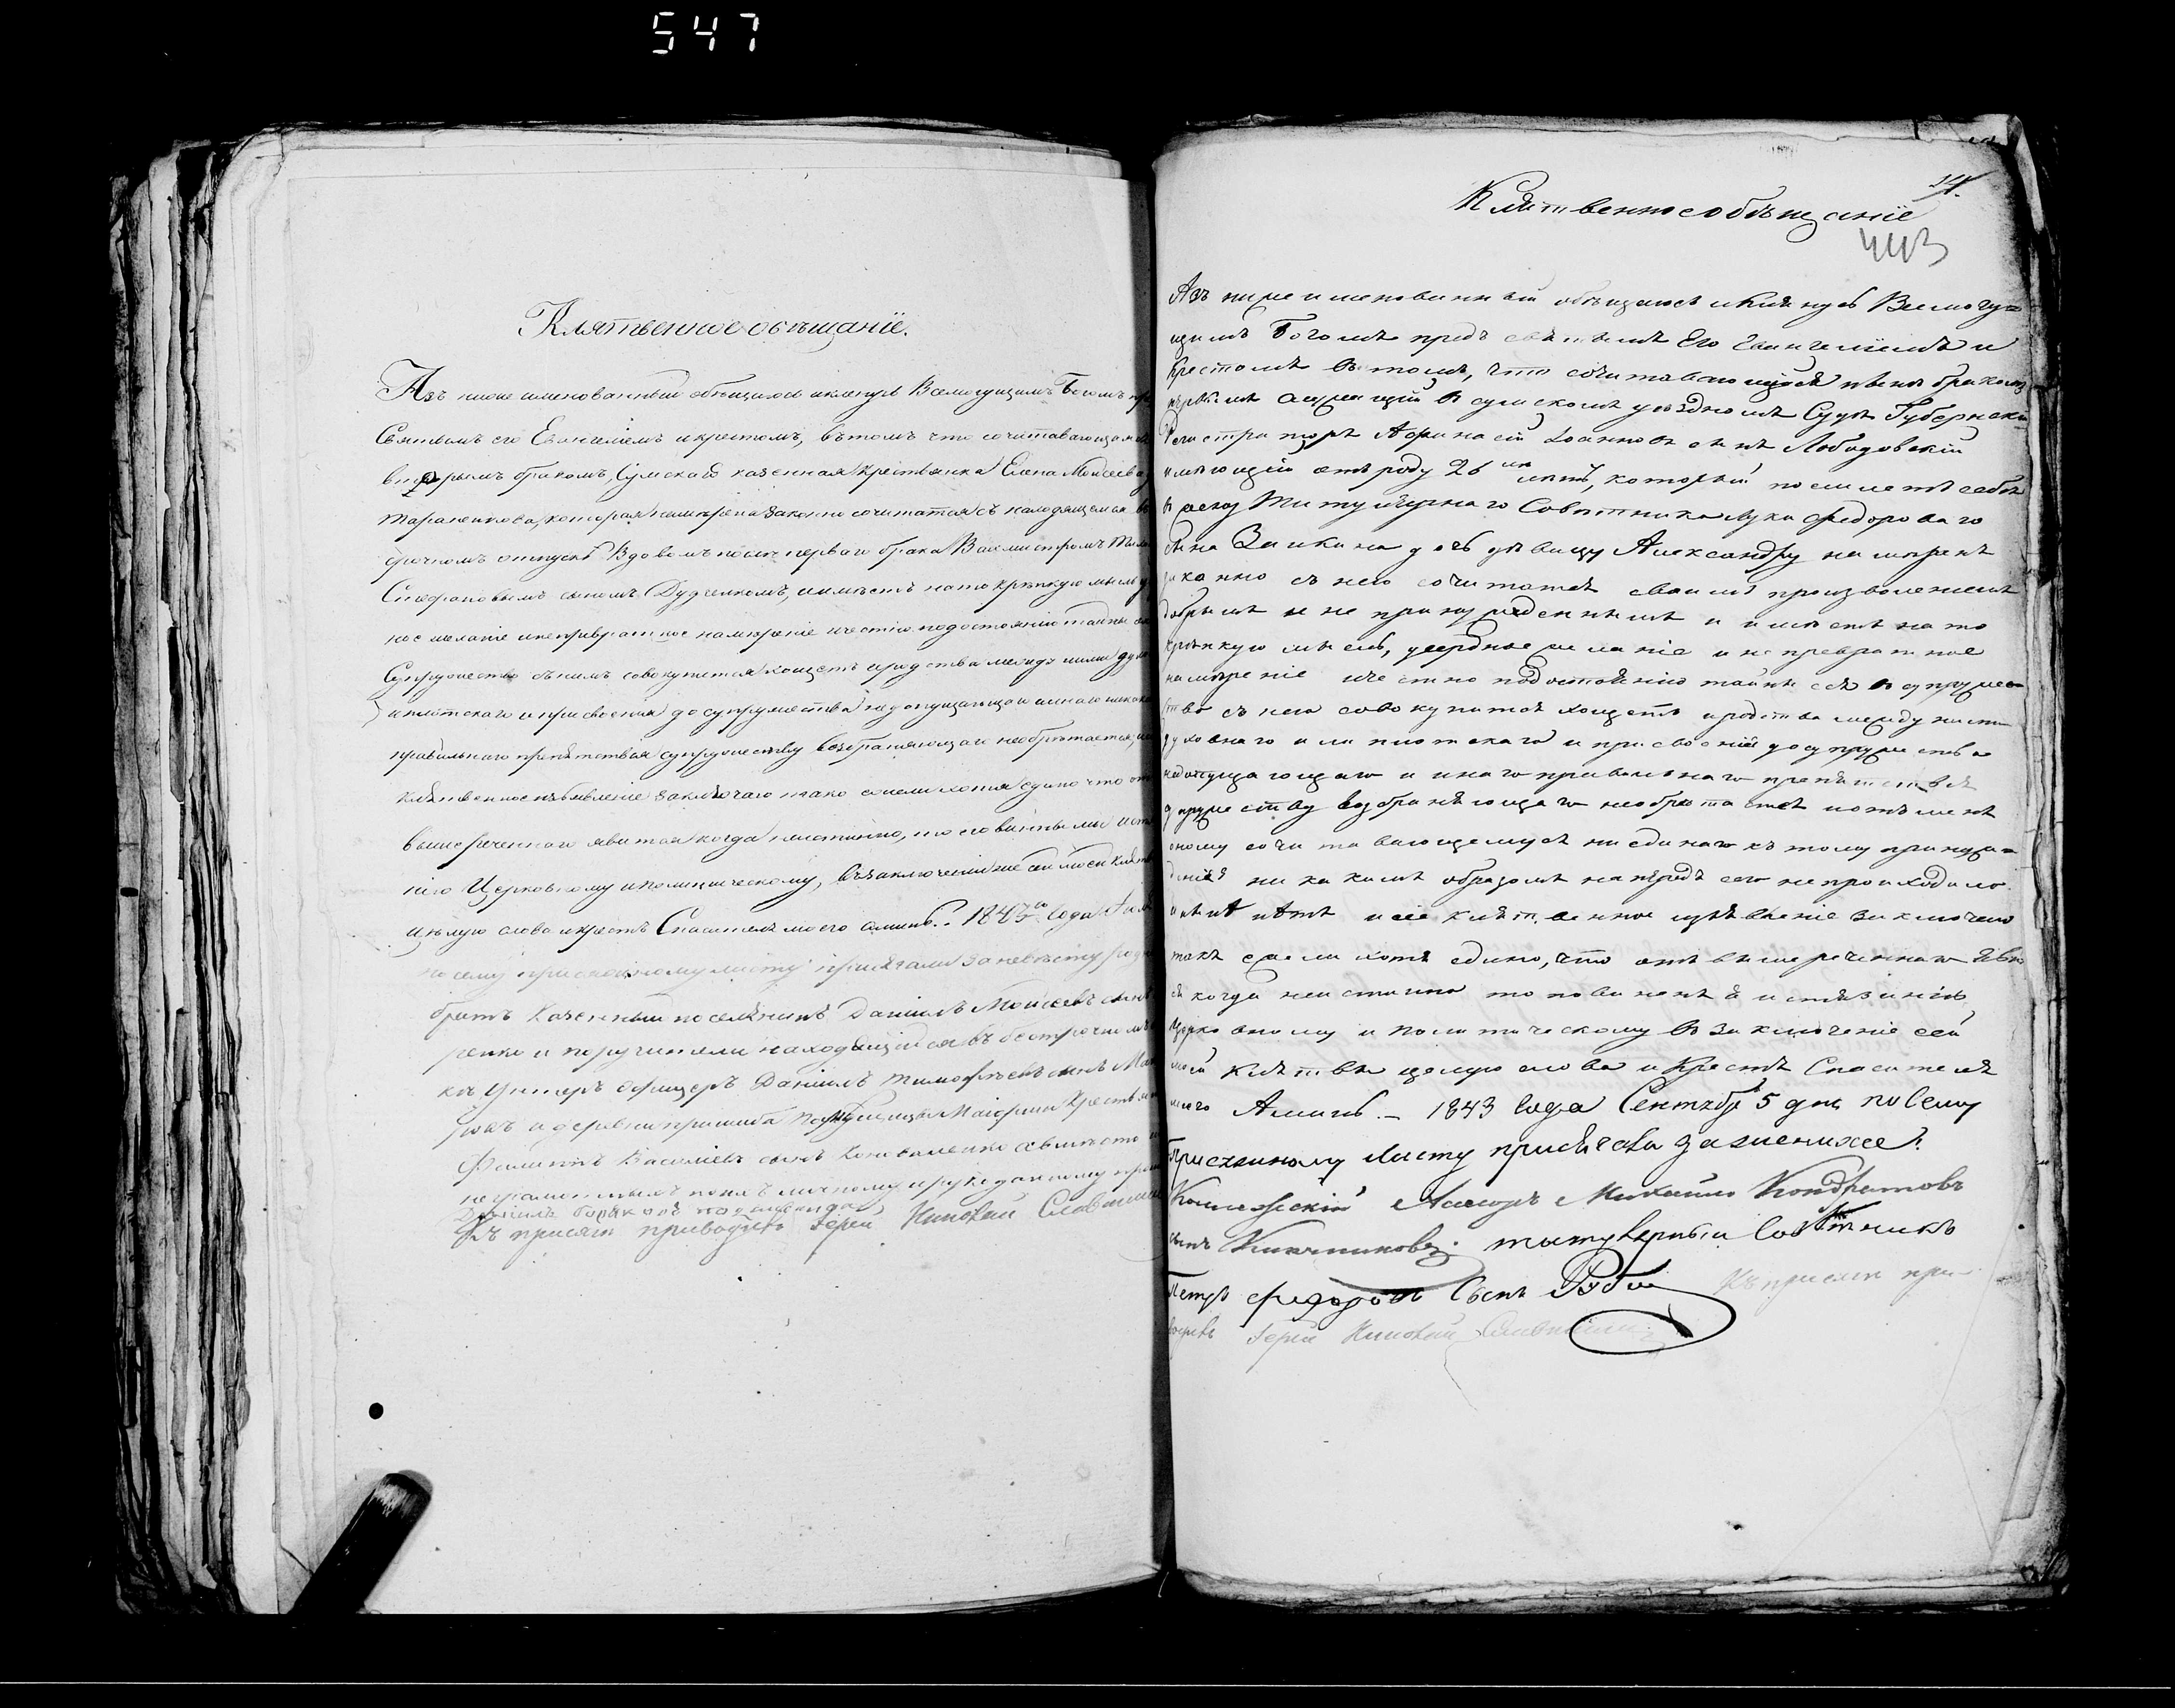 547
Клятвенное обѣщаніе.
Азъ ниже именованный обѣщаюсь и кленусь Всемогущимъ Богомъ пр
Святымъ его Евангеліемъ и крестомъ, въ томъ что сочитавающаяся
вторымъ бракомъ, Сумская казенная крестьянка Елена Моисеева
Тараненкова, которая намѣрена законно сочитатся съ находящемся въ
срочномъ отпускѣ вдовомъ после перваго брака Вахмистромъ
Стефановымъ сыномъ Дудченкомъ, имѣетъ на то крѣпкую мысль у
ное желаніе и непревратное намѣреніе и честно, по достоянію тайны
Супружество съ нимъ совокупится хощетъ сродства между ними духо
и плотскаго и присвоенія до супружества недопущающаго и инаго никако
правильнаго препятствія супружеству возбраняющаго необрѣтается,
клятвенное изъявленіе заключаю тако ежели хотя едино что от
вышереченнаго явится когда неистинно, то повинны мы ист
нію Церковному и политическому, Въ заключеніи же сей моей клятв
цѣлую слова и крестъ Спасителя моего аминь. 1843го Года
по сему присяжному листу присягали за невѣсту род
братъ Казенный поселянинъ Даніилъ Моисеевъ сынъ
ренко и поручители находящійся въ безсрочномъ
кѣ Унтеръ офицеръ Даніилъ Тимофѣевъ сынъ
Филиппъ Василіевъ сынъ
неграмотныхъ по ихъ личному и рукоданному про
Къ присягѣ приводилъ Іерей Николай
14.
Клятвенное обѣщаніе
443
Азъ нижеименованный обѣщаюсь и кленусь Всемогу-
щимъ Богомъ предъ святымъ Его Евангеліемъ и
Крестомъ въ томъ, что сочитавающійся нынѣ бракомъ
первымъ служащій в сумскомъ уѣздномъ Судѣ Губернскій
Регистраторъ Афанасій Іоанновъ сынъ Лободовскій
имѣющій отъ роду 26ть лѣтъ, который поемлетъ себѣ
в жену Титулярнаго Совѣтника Луки Федорова
сына Заикина дочь дѣвицу Александру намѣренъ
законно съ нею сочитатся своимъ произволеніемъ
добрымъ и не принужденнымъ и имѣетъ на то
крѣпкую мысль, усердное желаніе и непревратное
намѣреніе и честно по достоянію тайны сея в супруже-
ство съ нею совокупится хощетъ сродства между ними
духовнаго или плотскаго и присвоенія до супружества
недопущающаго и инаго правильнаго препятствія
супружеству возбраняющаго необрѣтается и отъ мене
оному сочитавающемуся ни единаго къ тому принуж-
денія никакимъ образомъ напредъ сего непроисходило
и нынѣ нѣтъ и сіе клятвенное изъявленіе заключаю
такъ ежели хотя едино, что отъ вышереченнаго яви
ся когда неистинно то повиненъ я истязанію
Церковному и политическому в заключеніе сей
моей клятвы целую слова и Крестъ Спасителя
моего Аминь. - 1843 Года Сентября 5 дня по сему
Присяжному листу присягали за женихе:
Колежскій Асесоръ Михайло Кондратовъ
сынъ титулярный Совѣтникъ
Петръ федоровъ Сынъ Къ присягѣ при-
водилъ Іерей Николай